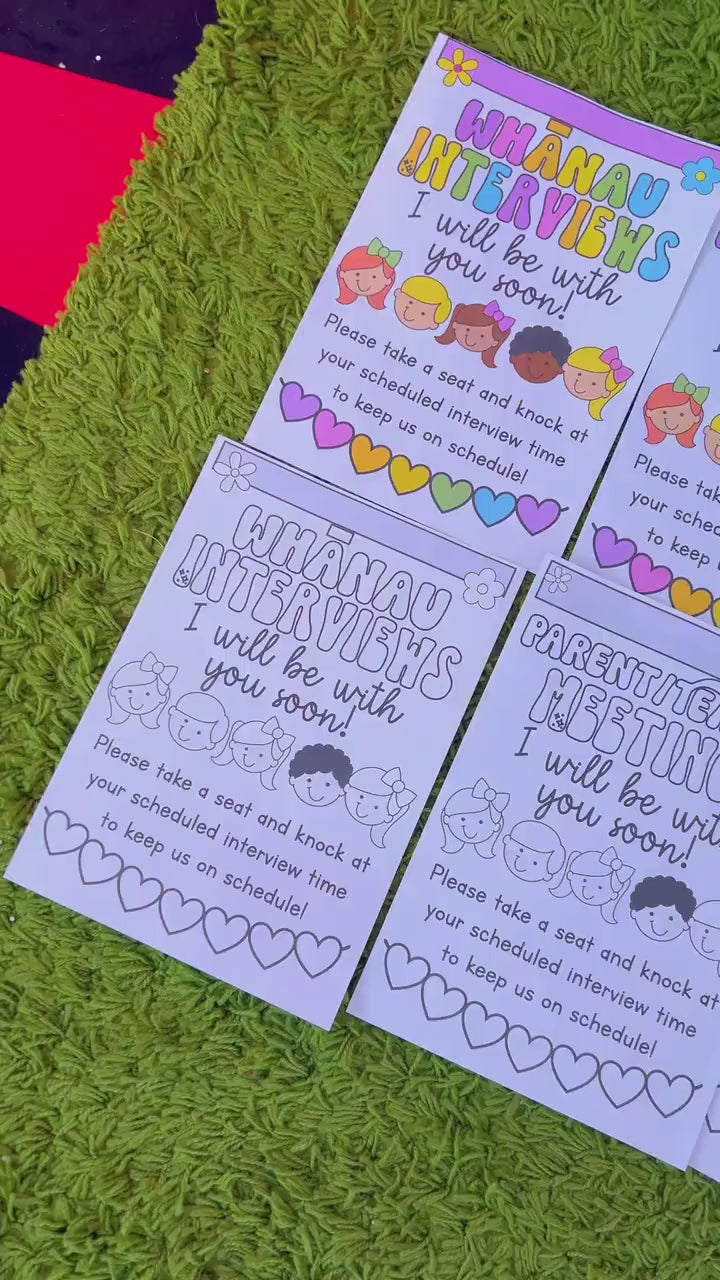 WHĀNAU
INTERVIEWS
I will be with
you soon!
Please take a seat and knock at
your scheduled interview time
to keep us on schedule!
Please
your
to keep
WHĀNAU
INTERVIEWS
I will be with
you soon!
Please take a seat and knock at
your scheduled interview time
to keep us on schedule!
PARENT/
I will be
you soon!
Please take a seat and knock at
your scheduled interview time
to keep us on schedule!